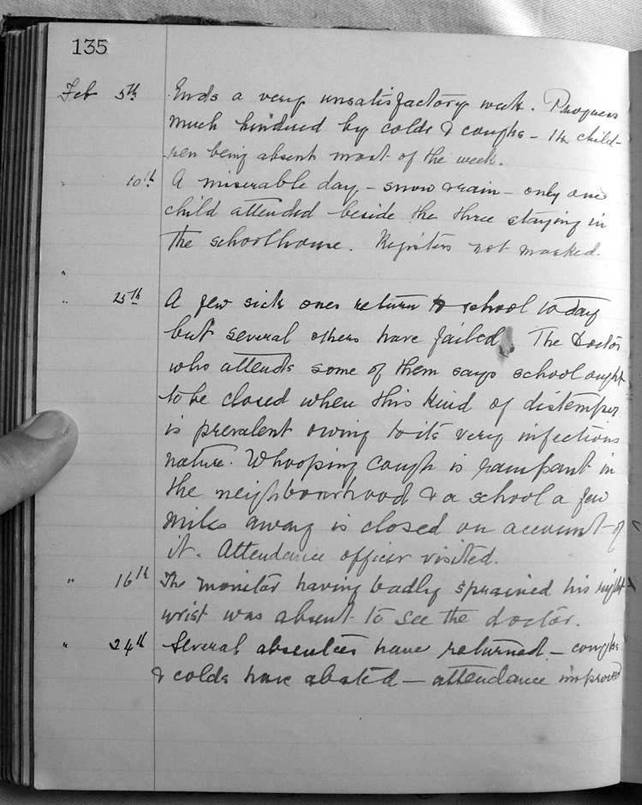 135
Feb 5th Ends a very unsatisfactory week. Progress
much hindered by colds & coughs – the child-
ren being absent most of the week.
" 10th A miserable day – snow & rain – only one
child attended beside the three staying in
the schoolhouse. Registers not marked.
"
" 15th A few sick ones return to school to day
but several others have failed. The Doctor
who attends some of them says school ought
to be closed when this kind of distemper
is prevalent owing to its very infectious
nature. Whooping cough is rampant in
the neighbourhood & a school a few
miles away is closed on account of
it. Attendance officer visited.
" 16th The monitor having badly sprained his right
wrist was absent to see the doctor.
" 24th Several absentees have returned – coughs
& colds have abated – attendance improved